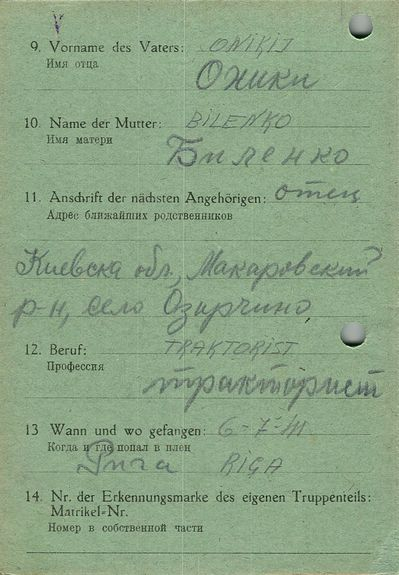 9. Vorname des Vaters: ONIKIJ
Имя отца Оники
10. Name der Mutter: BILENKO
Имя матери Биленко
11. Anschrift der nächsten Angehörigen: отец
Адрес ближайших родственников
Киевска обл., Макаровский
р-н, село Озирчино
12. Beruf: TRAKTORIST
Профессия тракторист
13 Wann und wo gefangen: 6-7-41
Когда и где попал в плен
Рига RIGA
14. Nr. der Erkennungsmarke des eigenen Truppenteils:
Matrikel-Nr.
Номер в собственной части